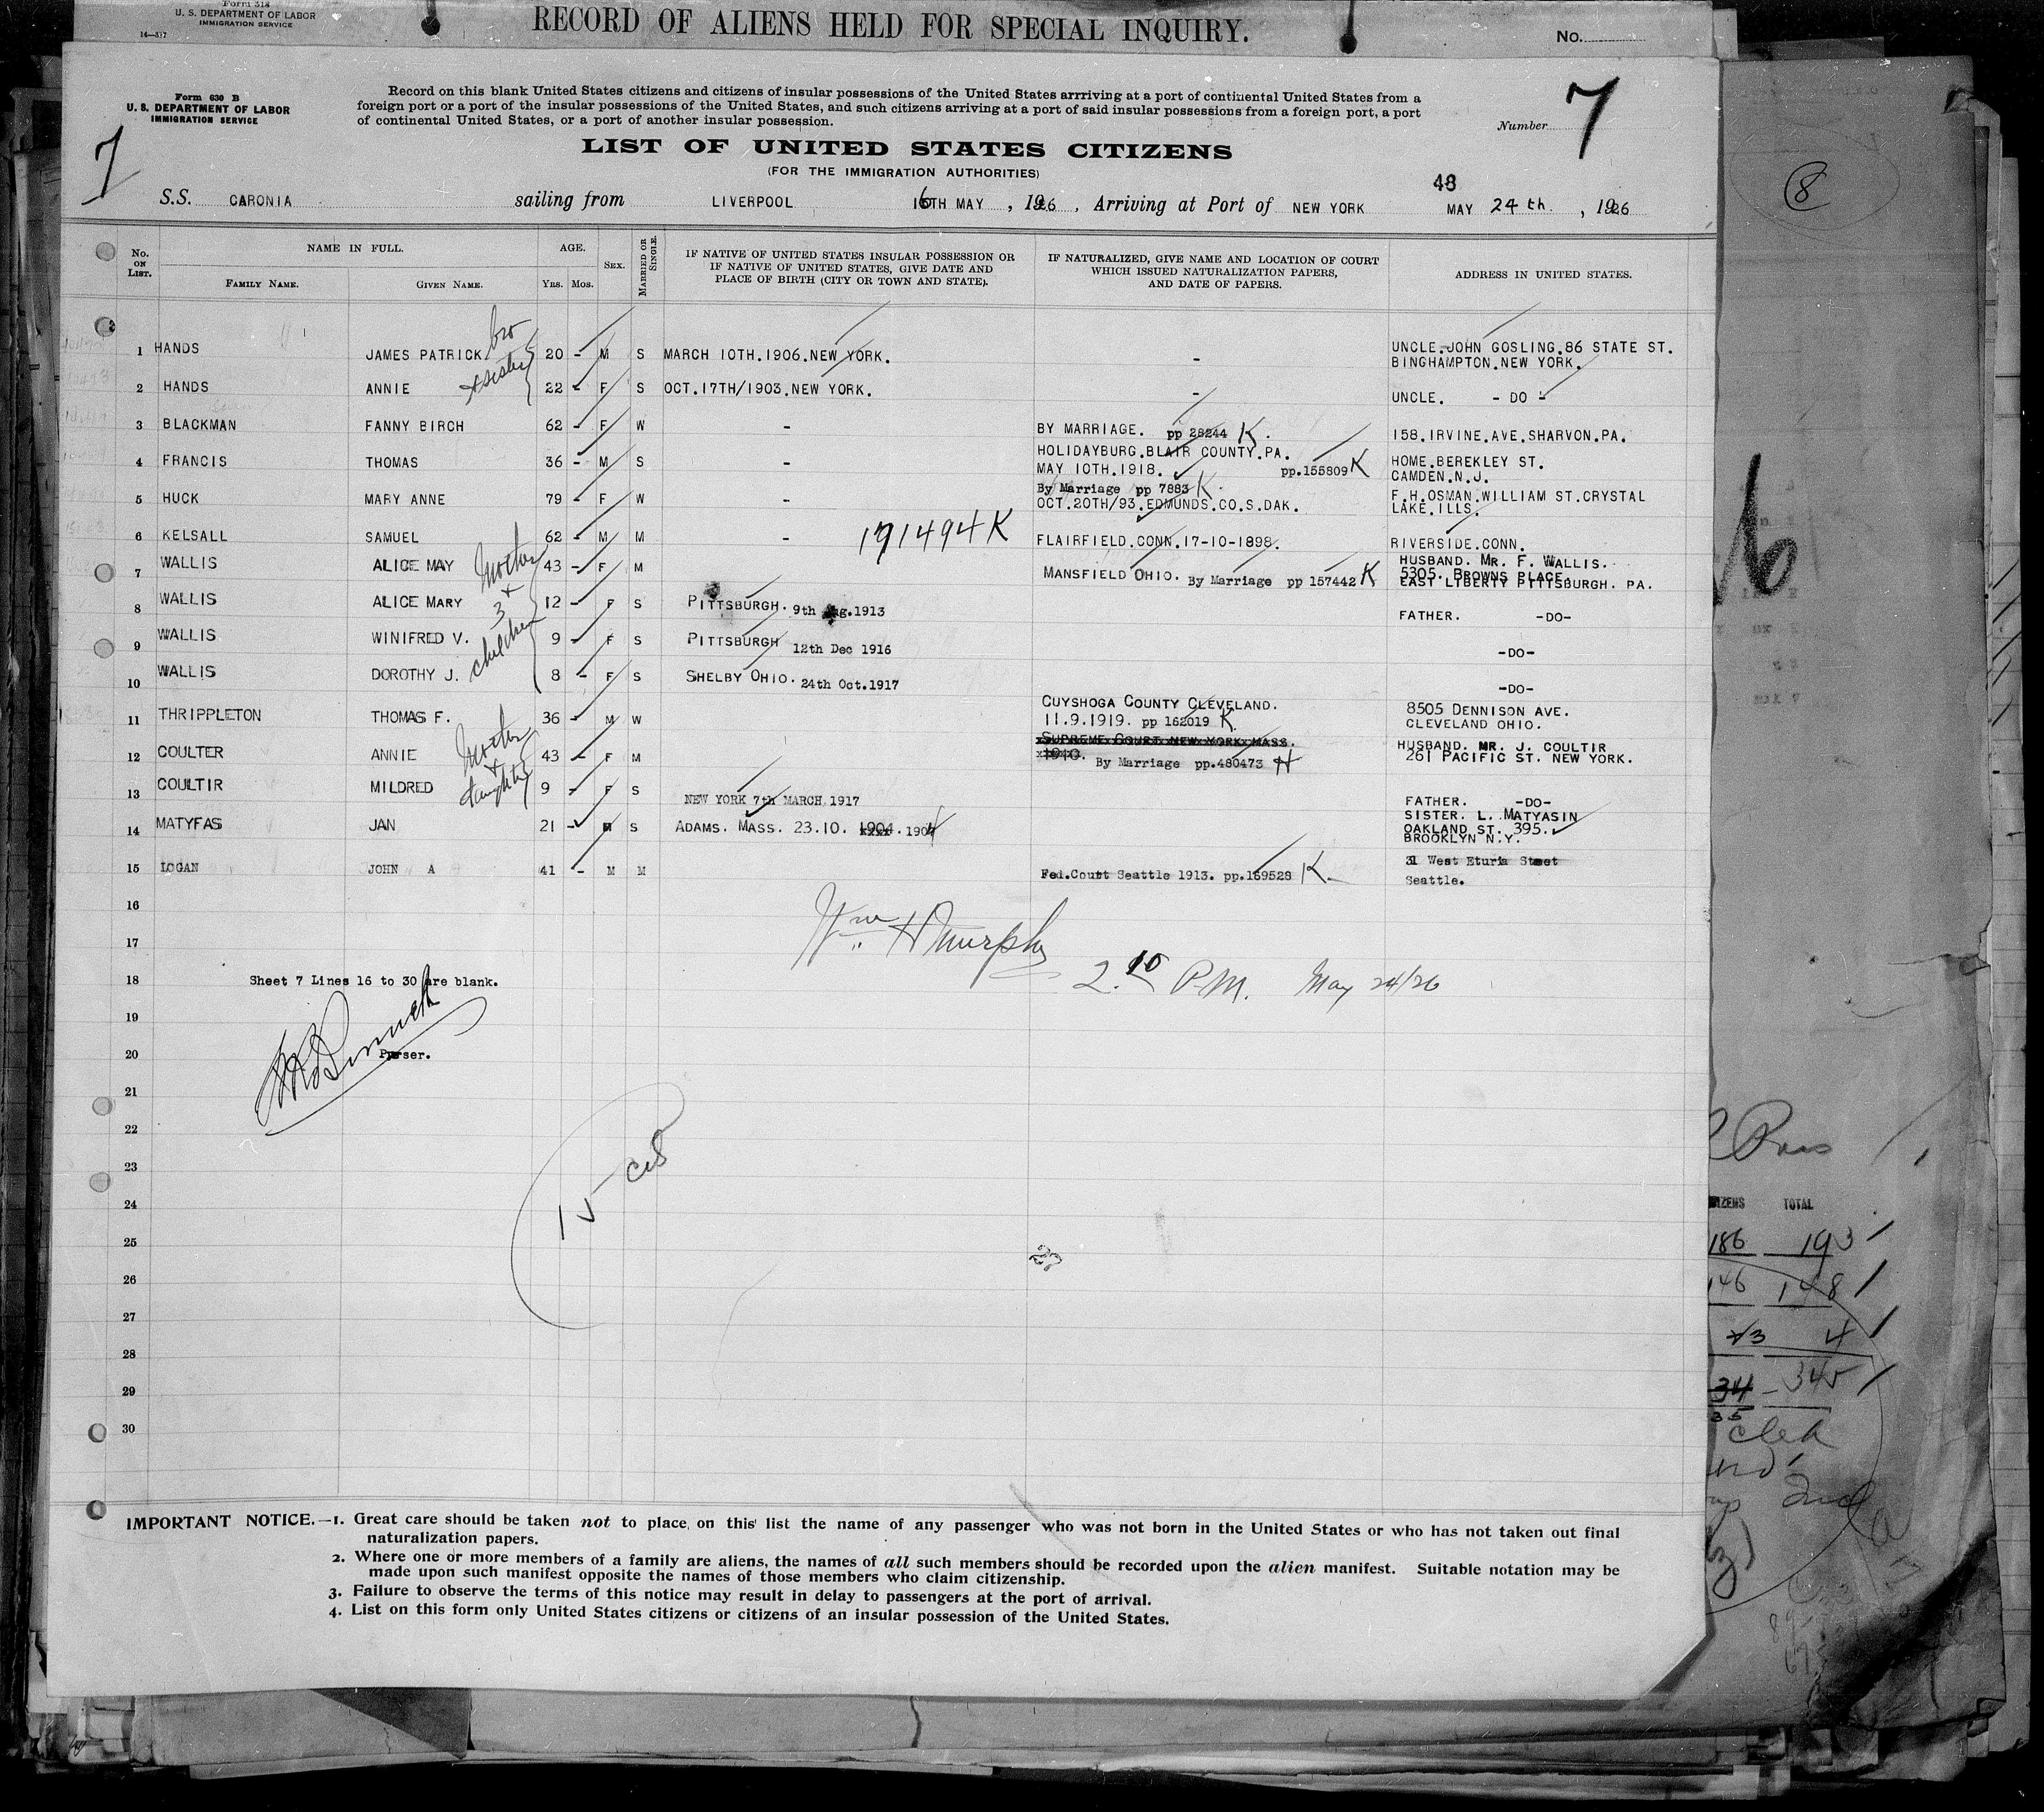 Form 318
U. S. DEPARTMENT OF LABOR
IMMIGRATION SERVICE
RECORD OF ALIENS HELD FOR SPECIAL INQUIRY.
No.
Form 630 B
U. S. DEPARTMENT OF LABOR
IMMIGRATION SERVICE
Record on this blank United States citizens and citizens of insular possessions of the United States arrriving at a port of continental United States from a
foreign port or a port of the insular possessions of the United States, and such citizens arriving at a port of said insular possessions from a foreign port, a port
of continental United States, or a port of another insular possession.
Number 7
7
LIST OF UNITED STATES CITIZENS
(FOR THE IMMIGRATION AUTHORITIES)
48
S.S. CARONIA sailing from LIVERPOOL 16TH MAY, 1926, Arriving at Port of NEW YORK MAY 24th, 1926
8
No. ON LIST. NAME IN FULL. FAMILY NAME. GIVEN NAME. AGE. YRS. MOS. SEX. MARRIED OR SINGLE.
IF NATIVE OF UNITED STATES INSULAR POSSESSION OR
IF NATIVE OF UNITED STATES, GIVE DATE AND
PLACE OF BIRTH (CITY OR TOWN AND STATE).
IF NATURALIZED, GIVE NAME AND LOCATION OF COURT
WHICH ISSUED NATURALIZATION PAPERS,
AND DATE OF PAPERS.
ADDRESS IN UNITED STATES.
1 HANDS JAMES PATRICK bro 20 - M S MARCH 10TH.1906.NEW YORK. - UNCLE.JOHN GOSLING.86 STATE ST.
BINGHAMPTON.NEW YORK.
2 HANDS ANNIE + sister 22 - F S OCT.17TH/1903.NEW YORK. - UNCLE. - DO -
3 BLACKMAN FANNY BIRCH 62 - F W - BY MARRIAGE. pp 28244 K. 158.IRVINE.AVE.SHARVON.PA.
4 FRANCIS THOMAS 36 - M S - HOLIDAYBURG.BLAIR COUNTY.PA.
MAY 10TH.1918. pp.155809 K HOME.BEREKLEY ST.
CAMDEN.N.J.
5 HUCK MARY ANNE 79 - F W - By Marriage pp 7883 K.
OCT.20TH/93.EDMUNDS.CO.S.DAK. F.H.OSMAN.WILLIAM ST.CRYSTAL
LAKE.ILLS.
6 KELSALL SAMUEL 62 - M M - 191494 K FLAIRFIELD.CONN.17-10-1898. RIVERSIDE.CONN.
7 WALLIS ALICE MAY Mother 43 - F M MANSFIELD OHIO. By Marriage pp 157442 K HUSBAND. MR. F. WALLIS.
5305. BROWNS PLACE.
EAST LIBERTY PITTSBURGH. PA.
8 WALLIS ALICE MARY + 3 12 - F S PITTSBURGH. 9th Aug.1913 FATHER. -DO-
9 WALLIS WINIFRED V. children 9 - F S PITTSBURGH 12th Dec 1916 -DO-
10 WALLIS DOROTHY J. 8 - F S SHELBY OHIO. 24th Oct.1917 -DO-
11 THRIPPLETON THOMAS F. 36 - M W CUYSHOGA COUNTY CLEVELAND.
11.9.1919. pp 162019 K. 8505 DENNISON AVE.
CLEVELAND OHIO.
12 COULTER ANNIE Mother 43 - F M SUPREME COURT NEW YORK MASS.
1910. By Marriage pp.480473 H HUSBAND. MR. J. COULTIR
261 PACIFIC ST. NEW YORK.
13 COULTIR MILDRED + daughter 9 - F S NEW YORK 7th MARCH 1917 FATHER. -DO-
14 MATYFAS JAN 21 - M S ADAMS. MASS. 23.10. 1904. 1904 SISTER. L. MATYASIN
OAKLAND ST. 395.
BROOKLYN N.Y.
15 LOGAN JOHN A 41 - M M Fed.Court Seattle 1913. pp.169528 K 31 West Eturia Street
Seattle.
16
Wm H Murphy
17
18 Sheet 7 Lines 16 to 30 are blank. 2.10 P.M. May 24/26
19
20 Purser.
21
22
23
24
25
26
27
28
29
30
15 - cit
27
6
TOTAL
186 193
146 148
3 4
34 - 345
35
IMPORTANT NOTICE.—1. Great care should be taken not to place on this list the name of any passenger who was not born in the United States or who has not taken out final
naturalization papers.
2. Where one or more members of a family are aliens, the names of all such members should be recorded upon the alien manifest. Suitable notation may be
made upon such manifest opposite the names of those members who claim citizenship.
3. Failure to observe the terms of this notice may result in delay to passengers at the port of arrival.
4. List on this form only United States citizens or citizens of an insular possession of the United States.